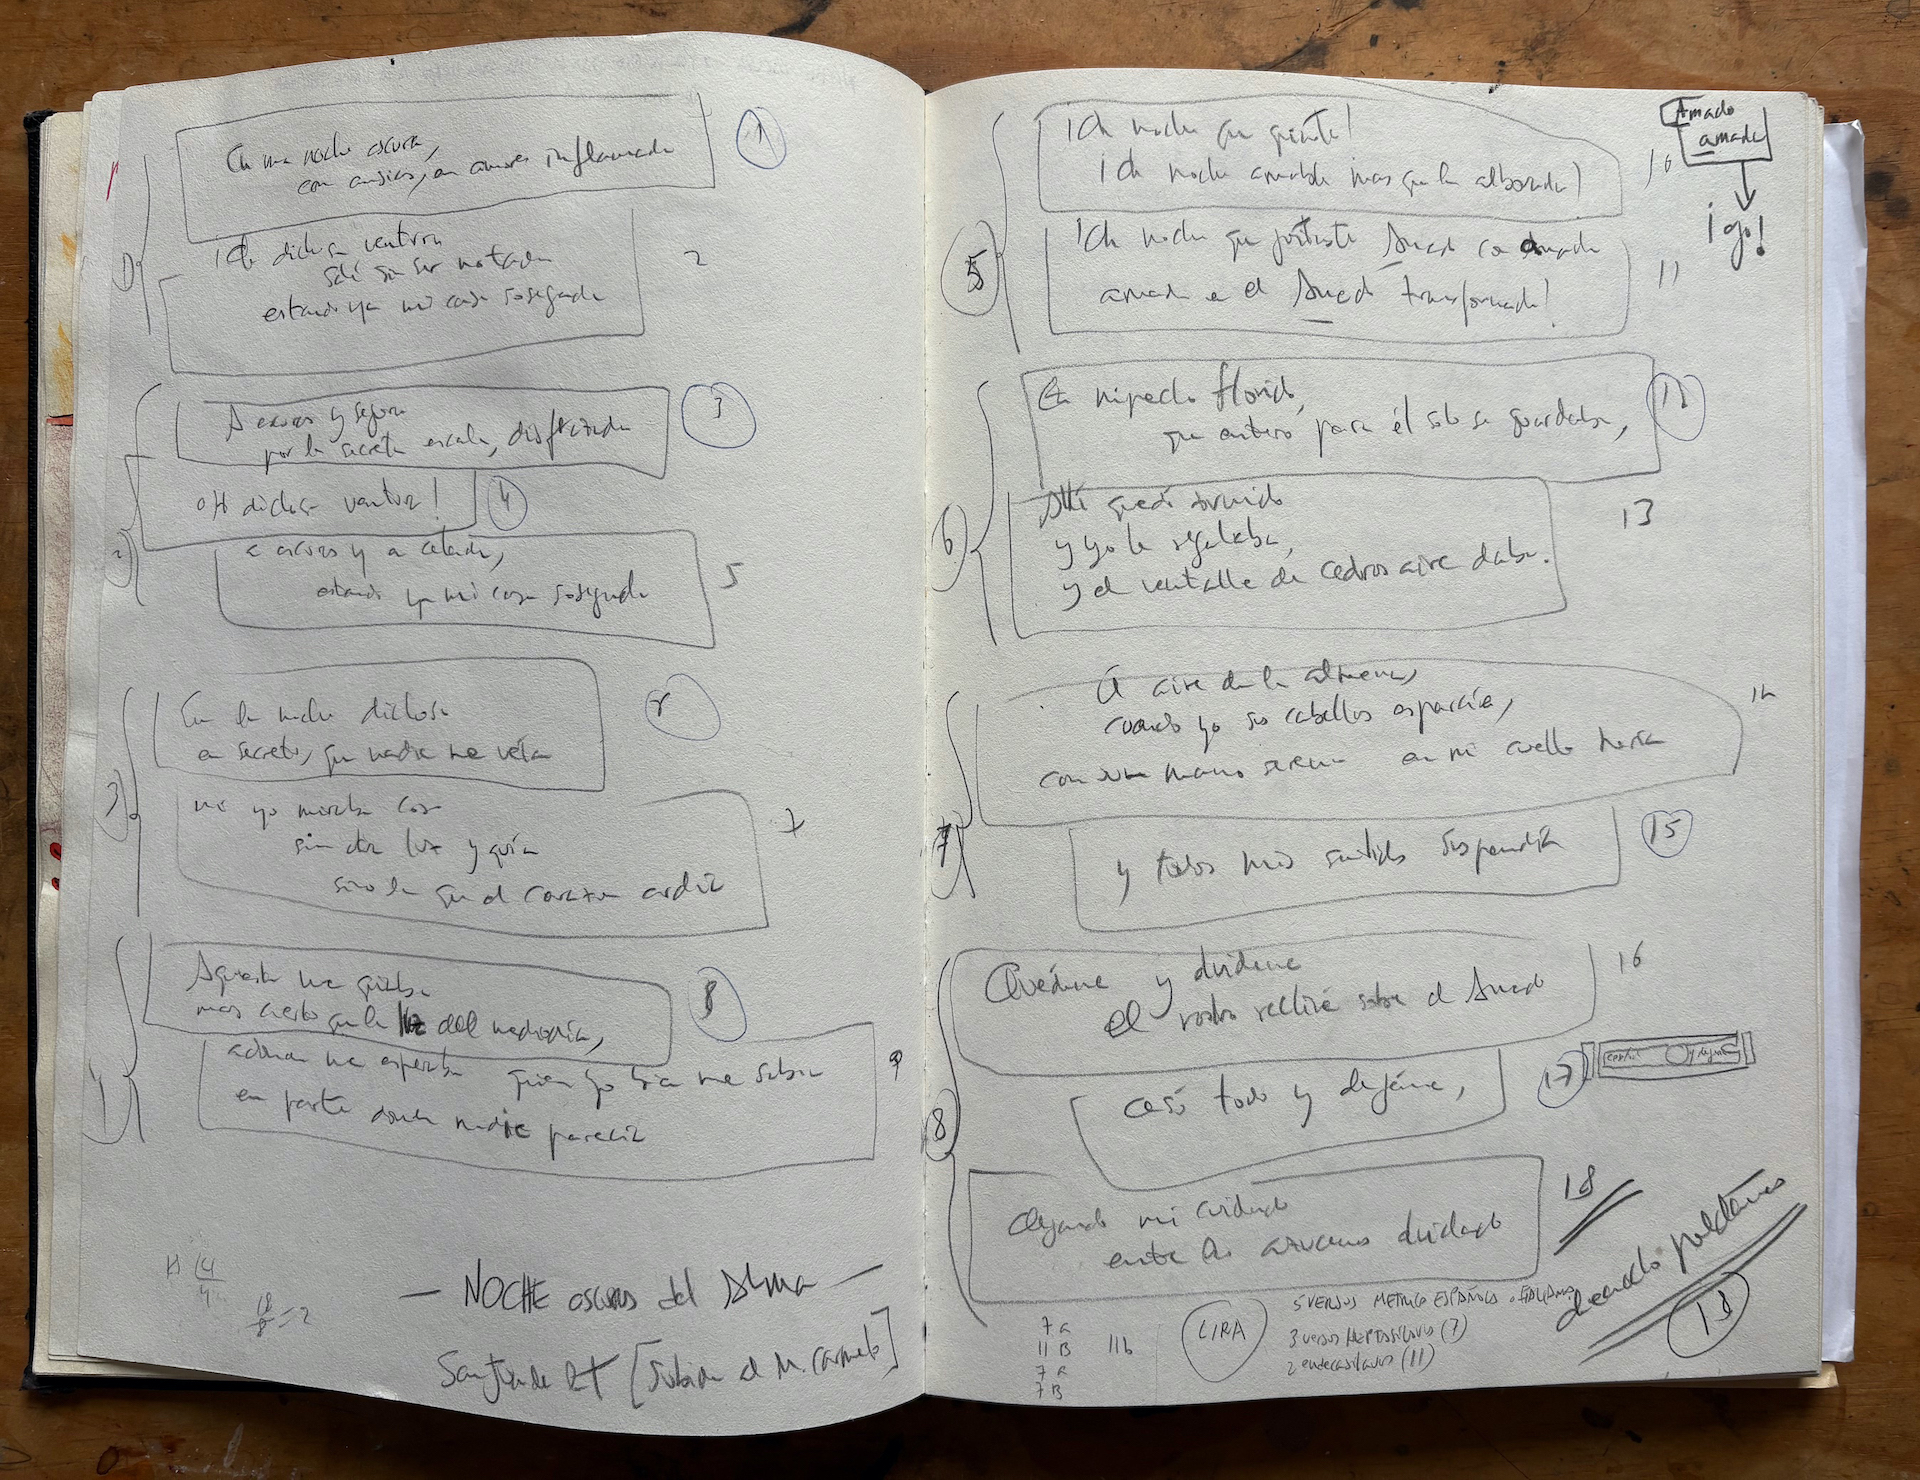 En una noche oscura,
con ansias, en amores inflamada
1
¡Oh dichosa ventura
salí sin ser notada
estando ya mi casa sosegada
2
1
A escuras y segura
por la secreta escala, disfrazada
3
oH dichosa ventura!
4
a escuras y a celada,
estando ya mi casa sosegada
5
2
En la noche dichosa
en secreto, que nadie me veía
ni yo miraba cosa
sin otra luz y guía
sino la que el corazón ardía
7
3
Aquesta me guiaba
mas cierto que la luz del mediodía,
8
adonde me esperaba quien yo bien me sabía
en parte donde nadie parecía
9
4
14
4
18
8 = 2
— NOCHE oscura del Alma —
San Juan de la † [Subida al M. Carmelo]
¡Oh noche que guiaste!
¡Oh noche amable mas que la alborada!
10
¡Oh noche que juntaste Amado con amada
amada en el Amado transformada!
11
5
Amado
amada
¡yo!
En mi pecho florido,
que entero para él solo se guardaba,
12
Allí quedó dormido
y yo le regalaba,
y el ventalle de cedros aire daba.
13
6
El aire de la almena,
cuando yo sus cabellos esparcía,
con su mano serena en mi cuello hería
14
y todos mis sentidos suspendía
15
7
Quedéme y olvidéme
el rostro recliné sobre el Amado
16
cesó todo y dejéme,
17
8
dejando mi cuidado
entre las azucenas olvidado
18
18
7 a
11 B 11b
7 a
7 B
LIRA
5 VERSOS METRICA ESPAÑOLA o ITALIANA
3 versos HEPTASILAVOS (7)
2 endecasilavos (11)